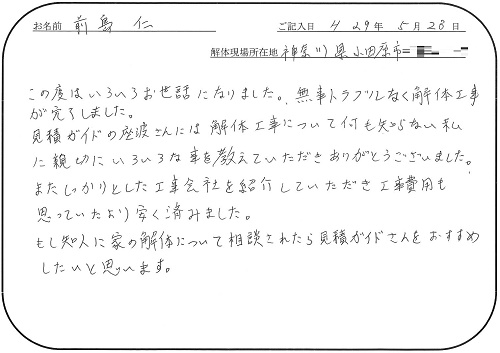 お名前 前島 仁 ご記入日 H29年5月28日
解体現場所在地 神奈川県小田原市=
この度はいろいろお世話になりました。無事トラブルなく解体工事
が完了しました。
見積ガイドの座波さんには解体工事について何も知らない私
に親切にいろいろな事を教えていただきありがとうございました。
またしっかりとした工事会社を紹介していただき工事費用も
思っていたより安く済みました。
もし知人に家の解体について相談されたら見積ガイドさんをおすすめ
したいと思います。